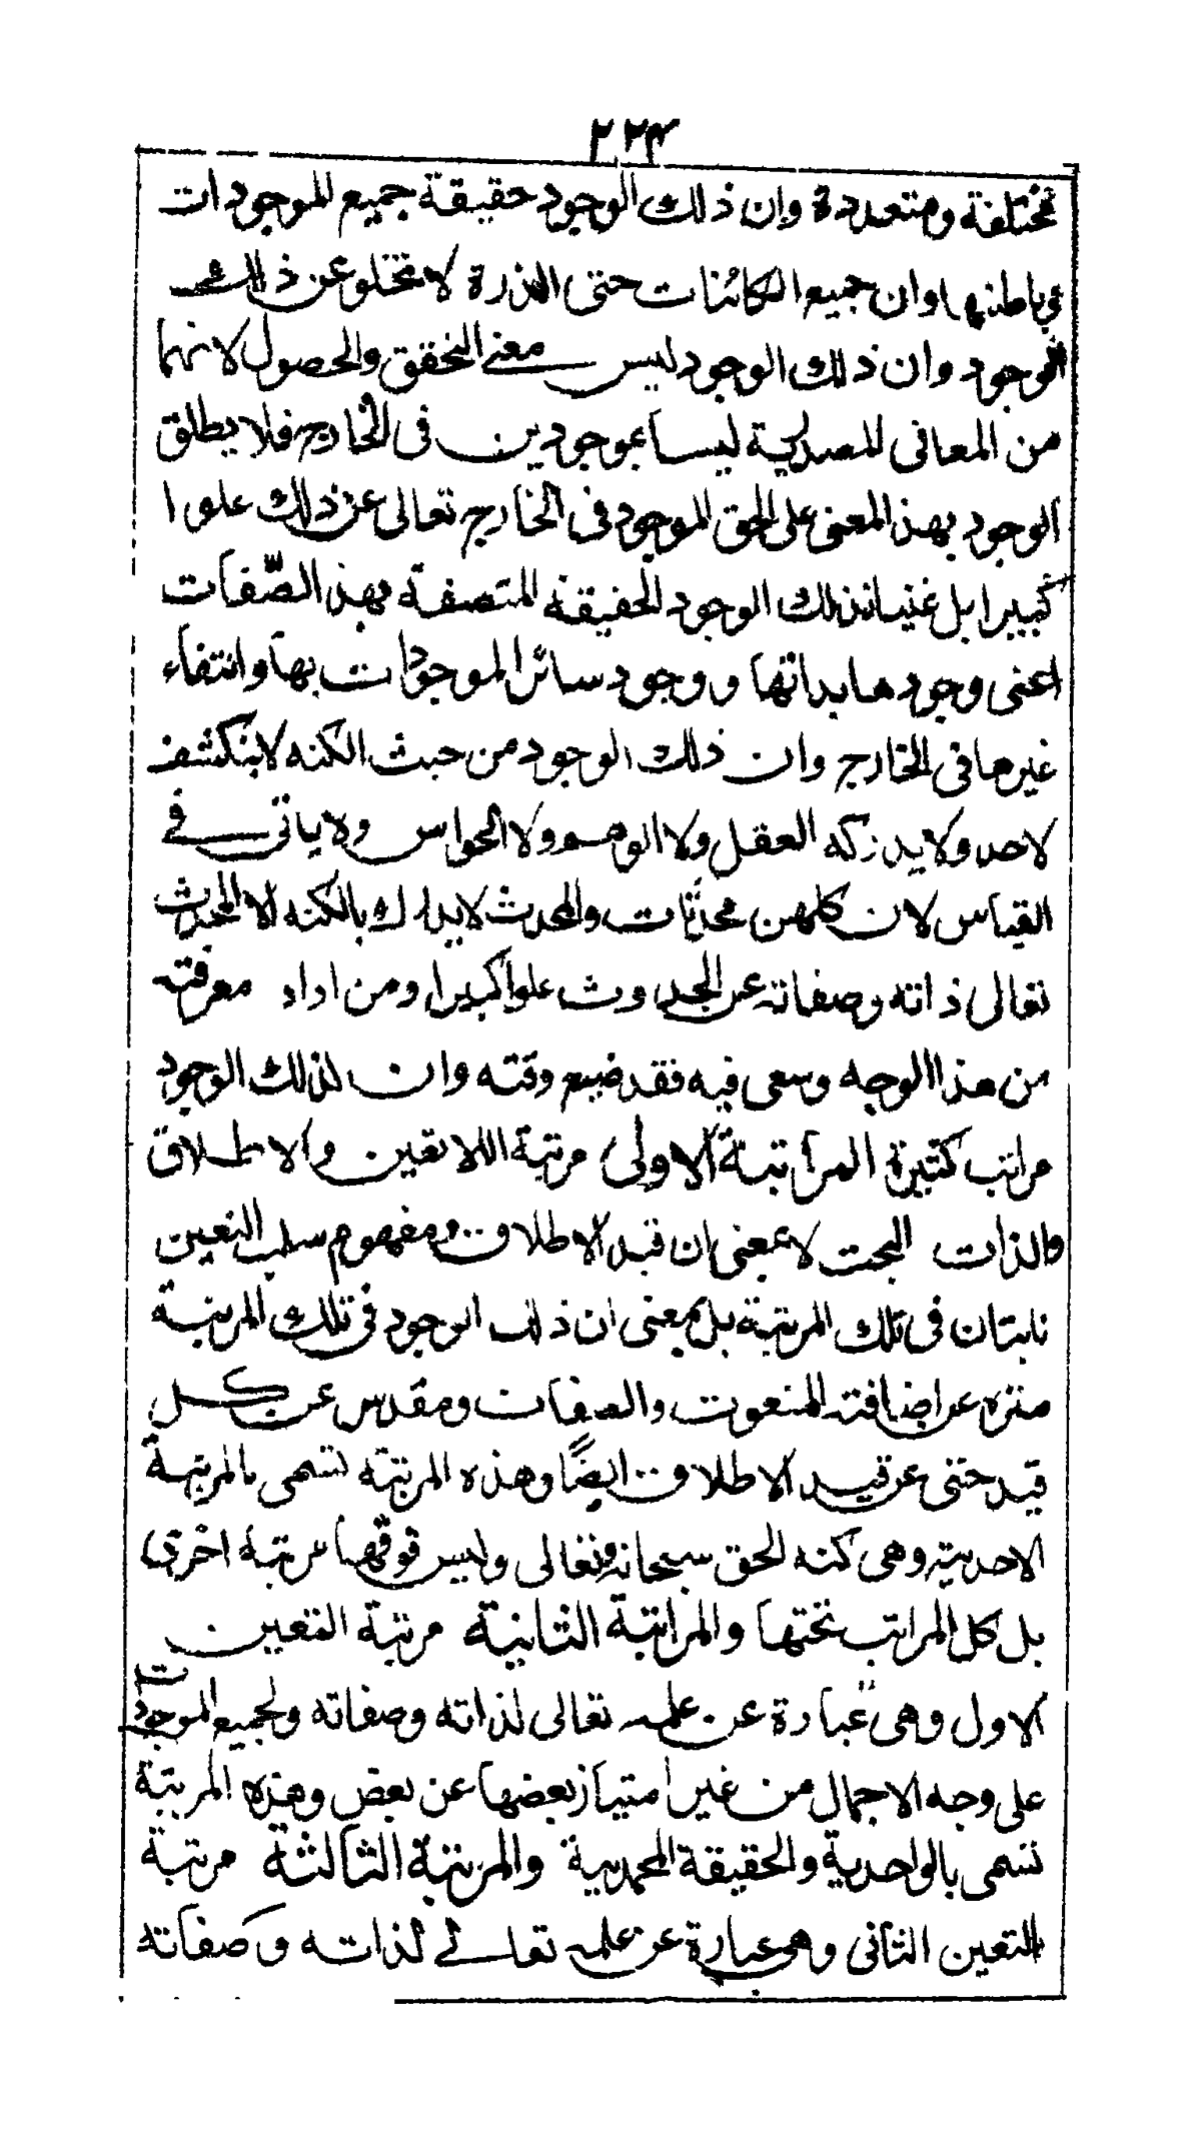 ٢٢٣
مختلفة ومتعددة وان ذلك الوجود حقيقة جميع الموجودات
في باطنها وان جميع الكائنات حتى الذرة لا تخلو عن ذلك
الوجود وان ذلك الوجود ليس معنى التحقق والحصول لانهما
من المعانى المصدرية ليسا بموجودين فى الخارج فلا يطلق
الوجود بهذ المعنى على الحق الموجود فى الخارج تعالى عن ذلك علوا
كبيرا بل عنينا بذلك الوجود الحقيقة المتصفة بهذ الصّفات
اعنى وجودها بذاتها ووجود سائر الموجودات بها وانتفاء
غيرها فى الخارج وان ذلك الوجود من حيث الكنه لا ينكشف
لاحد ولا يدركه العقل ولا الوهم ولا الحواس ولا ياتى في
القياس لان كلهن محدثات والمحدث لا يدرك بالكنه الا المحدث
تعالى ذاته وصفاته عن الحدوث علوا كبيرا ومن اراد معرفته
من هذا الوجه وسعى فيه فقد ضيع وقته وان لذلك الوجود
مراتب كثيرة المرتبة الاولى مرتبة اللاتعين والاطلاق
والذات البحت لا بمعنى ان قيد الاطلاق ومفهوم سلب التعين
ثابتان فى تلك المرتبة بل بمعنى ان ذلك الوجود فى تلك المرتبة
منزه عن اضافة المنعوت والصفات ومقدس عن كل
قيد حتى عن قيد الاطلاق ايضًا وهذه المرتبة تسمى بالمرتبة
الاحدية وهى كنه الحق سبحانه وتعالى وليس فوقها مرتبة اخرى
بل كل المراتب تحتها والمراتبة الثانية مرتبة التعين
الاول وهى عبارة عن علمه تعالى لذاته وصفاته ولجميع الموجودات
على وجه الاجمال من غير امتياز بعضها عن بعض وهذه المرتبة
تسمى بالواحدية والحقيقة المحمدية والمرتبة الثالثة مرتبة
التعين الثانى وهى عبارة عن علمه تعالى لذاته وصفاته